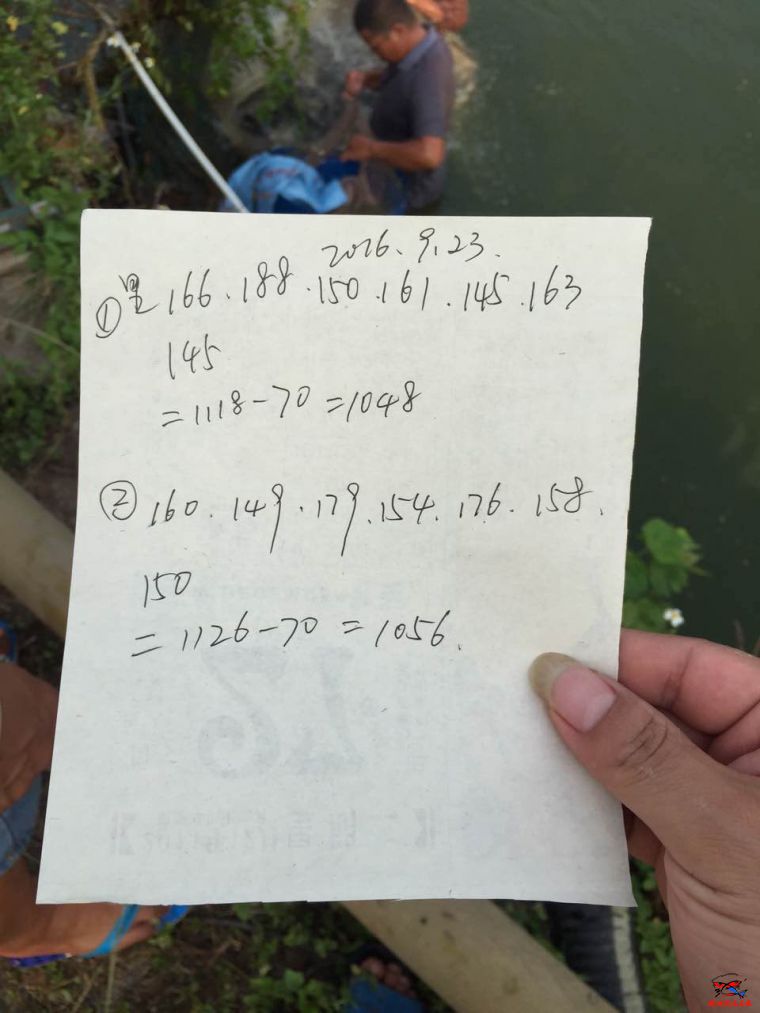 2016.9.23.
① 166.188.150.161.145.163
145
=1118-70=1048
② 160.149.179.154.176.158.
150
=1126-70=1056.